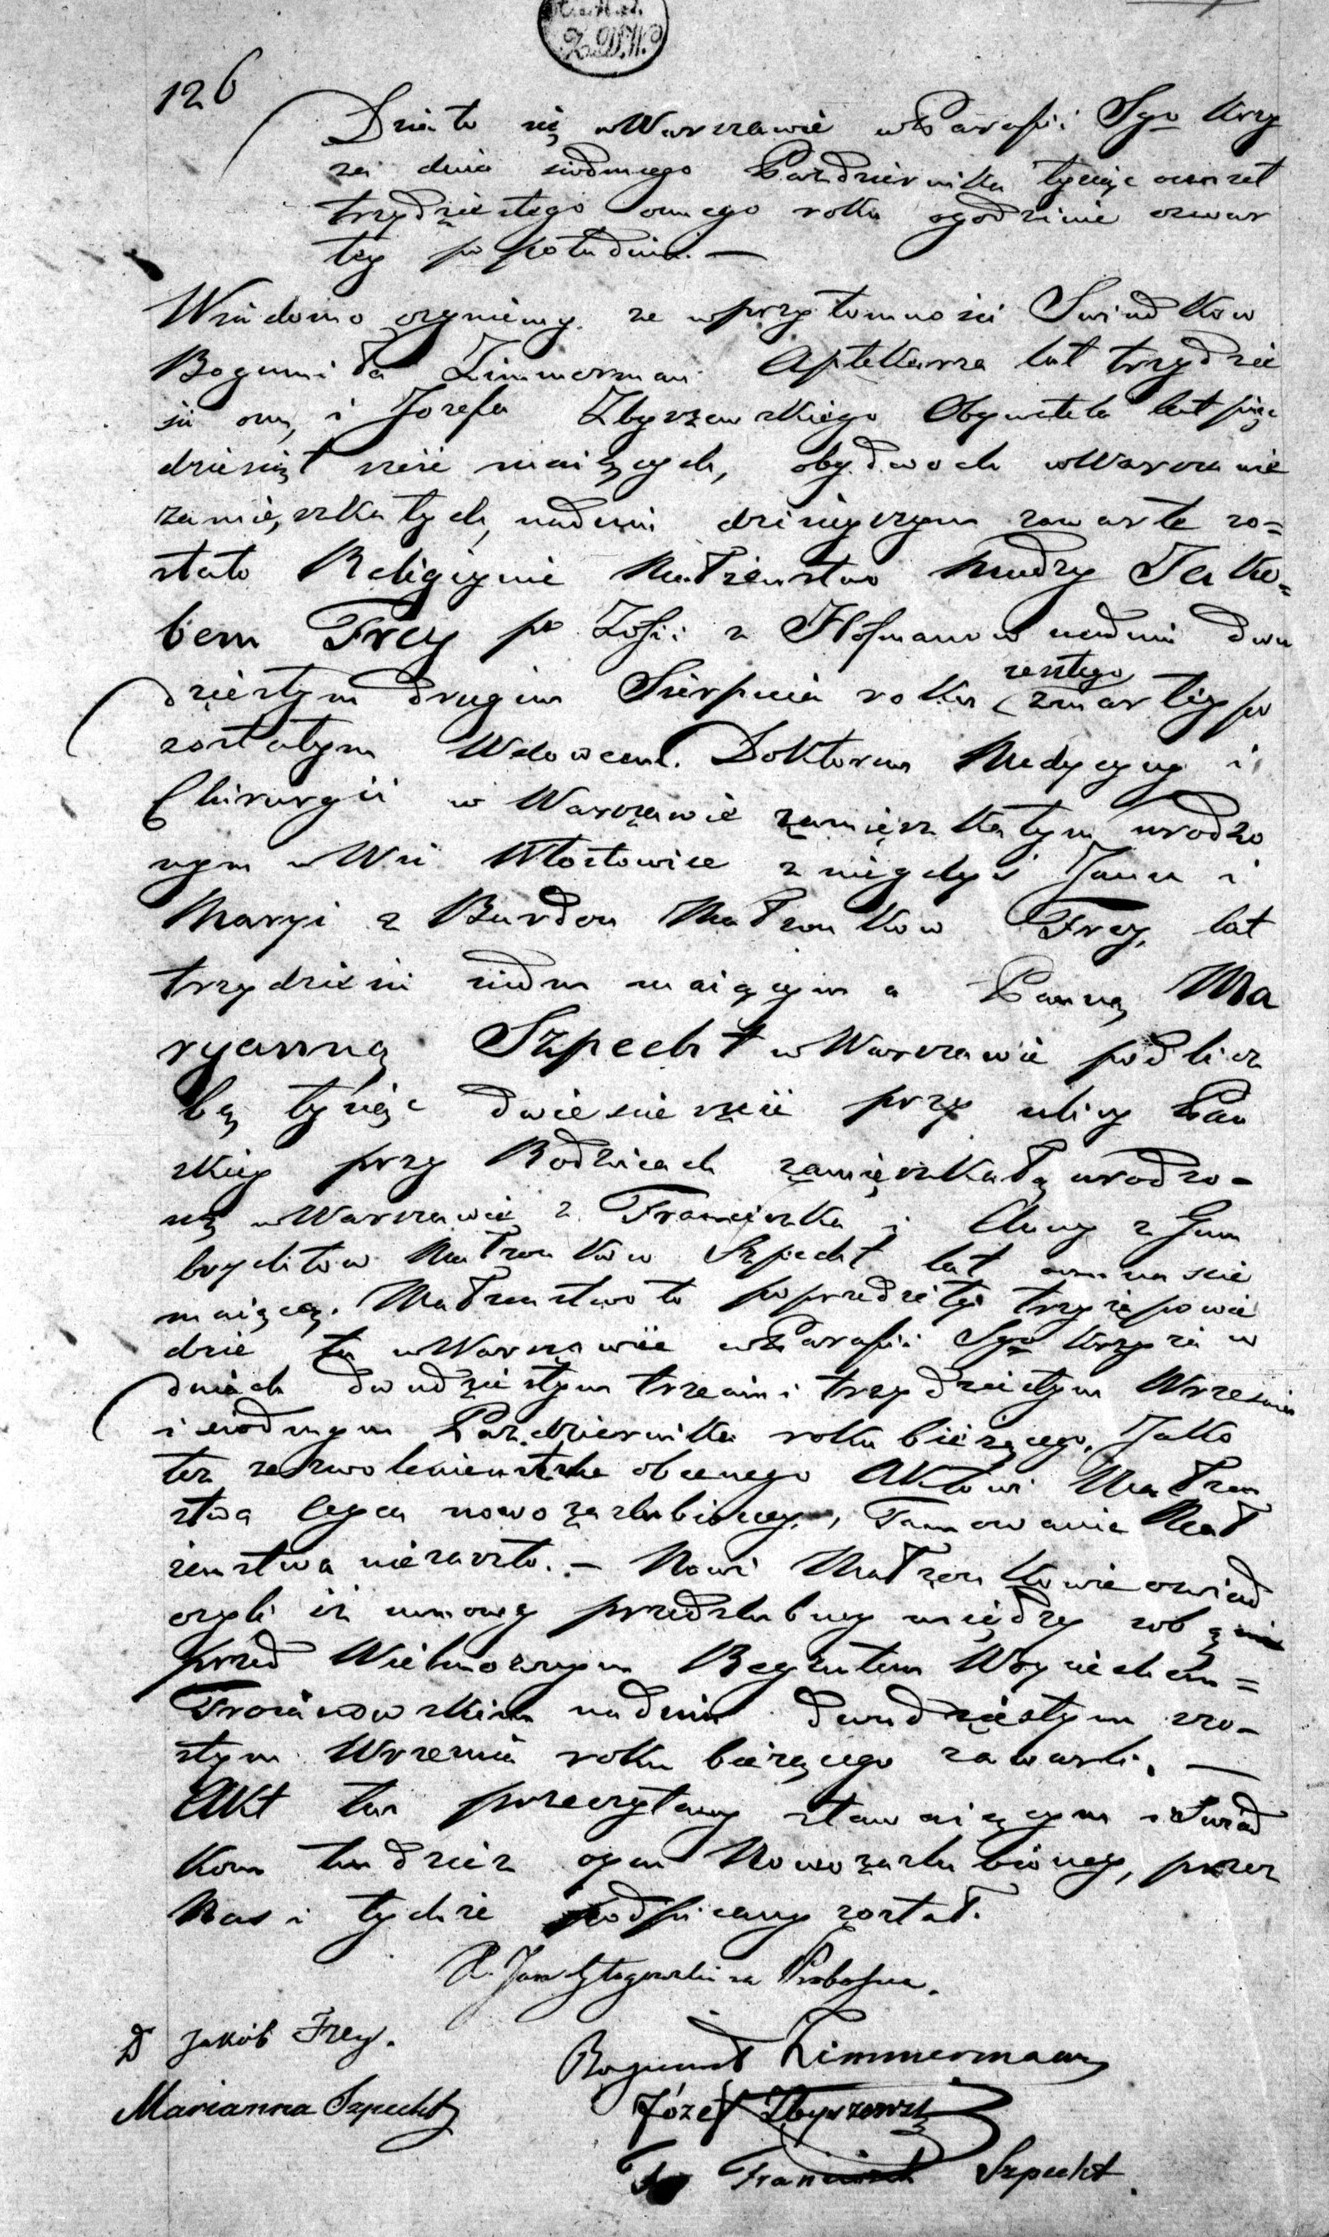 Z.D.W.
126
Działo się w Warszawie w Parafii Sgo Krzy
za dnia siodmego Pazdziernika tysiąc osmset
trzydziestego osmego roku o godzinie czwar
tey po południu. —
Wiadomo czyniemy ze w przytomności Swiadkow
Bogumiła Zimmerman Aptekarza lat trzydzie
ści osm, i Jozefa Zbyszewskiego Obywatela lat pięc
dziesiąt sześć maiących, obydwoch w Warszawie
zamieszkałych, na dniu dzisieyszym zawarte zo=
stało Religiyne Małzenstwo między Jako=
bem Frey po Zofii z Hofmanow na dniu dwu
dziestym drugim Sierpnia roku zeszłego zmarłey po
zostałym Wdowcem. Doktorem Medycyny i
Chirurgii w Warszawie zamięszkałym urodzo
nym w Wsi Włostowice z niegdyś Jana i
Maryi z Burdon Małzonkow Frey, lat
trzydzieści siedm maiącym a Panną Ma
ryanną Szpecht w Warszawie pod licz
bą tysiąc dwieście sześć przy ulicy Pań
skiey przy Rodzicach zamięszkałą urodzo-
ną w Warszawie z Franciszka i Anny z Gum
brychtow Małzonkow Szpecht lat osmnaście
maiącą. Małzenstwo to poprzedziły trzy zapowie
dzie tu w Warszawie w Parafii Sgo Krzyża w
dniach dwudziestym trzecim i trzydziestym Wrzesnia
i siodmym Pazdziernika roku bieżącego, Jako
też zezwolenie ustne obecnego Aktowi Małzen
stwa Oyca nowo zaslubioney, Tamowanie Mał
żenstwa niezaszło. — Nowi Małzonkowie oswiad
czyli iż umowę przedslubną między sobą
przed Wielmoznym Regentem Woyciechem=
Trojanowskim na dniu dwudziestym szo-
stym Wrzesnia roku bieżącego zawarli. —
Akt ten przeczytany stawaiącym i Swiad
kom tudzież oycu Nowozaslubioney, przez
Nas i tychże podpisany został.
X. Jan Głogowski za Proboszcza.
D Jakób Frey.
Bogumił Zimmermann
Marianna Szpecht
Józef Zbyszewski
Franciszek Szpecht.